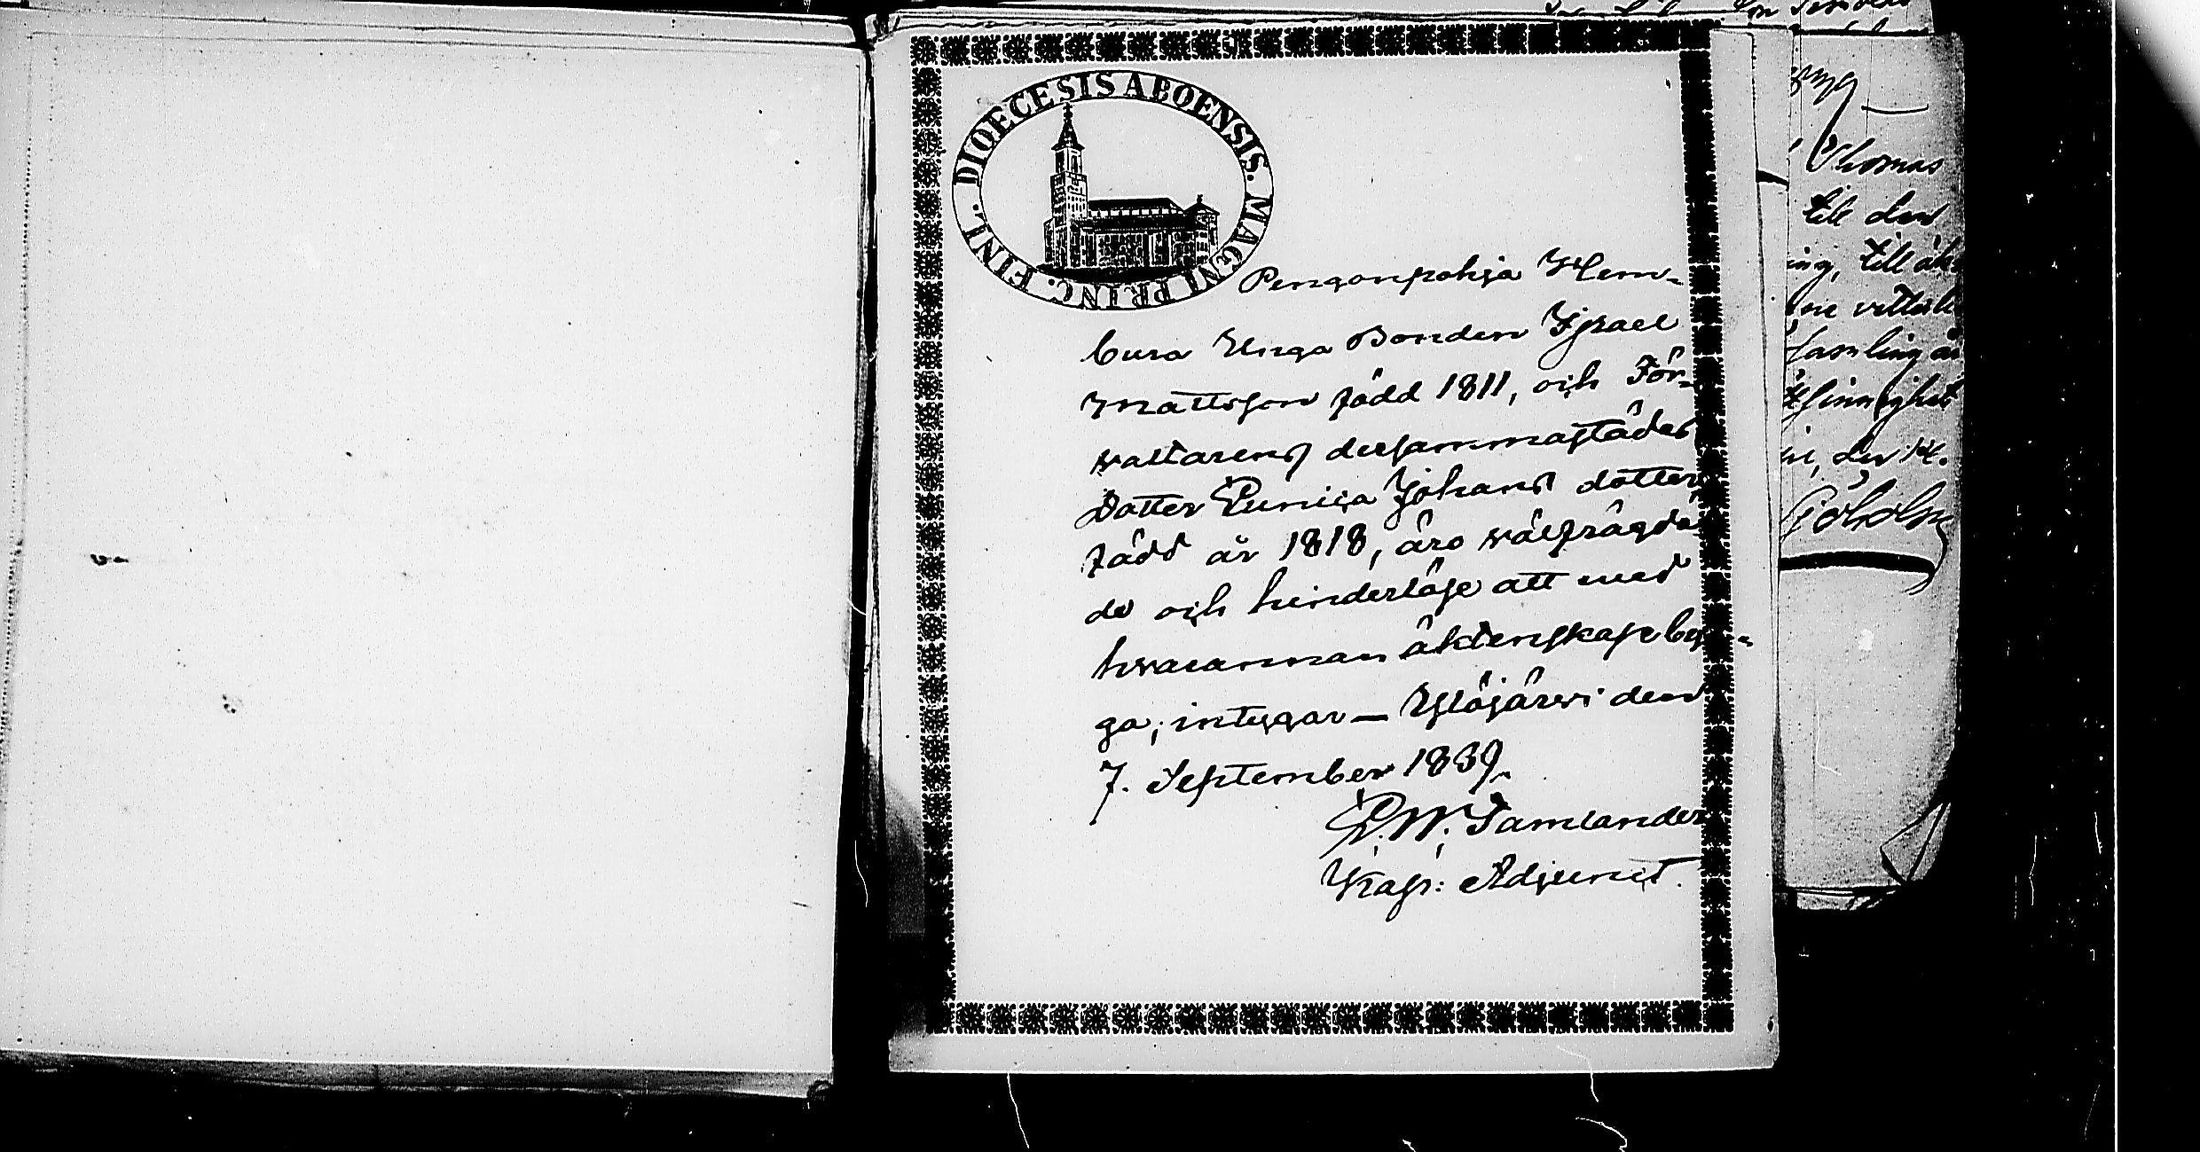 DIOECESIS ABOENSIS. MAGNI PRINC. FINL.
Pengonpohja Hem-
bura Unga Bonden Israel
Mattsson född 1811, och För-
valtarens dersammastädes
Dotter Eunica Johans dotter
född år 1818, äro välfrägda
de och hinderlöse att med
hvaranman äktenskap be-
ga, intygar — Ylöjärvi den
7. September 1839.
W. Tamlander
Kap: Adjunct.
Thomas
till den
ing, till äk
ne vitterl
samling är
sinnighet
den 14.